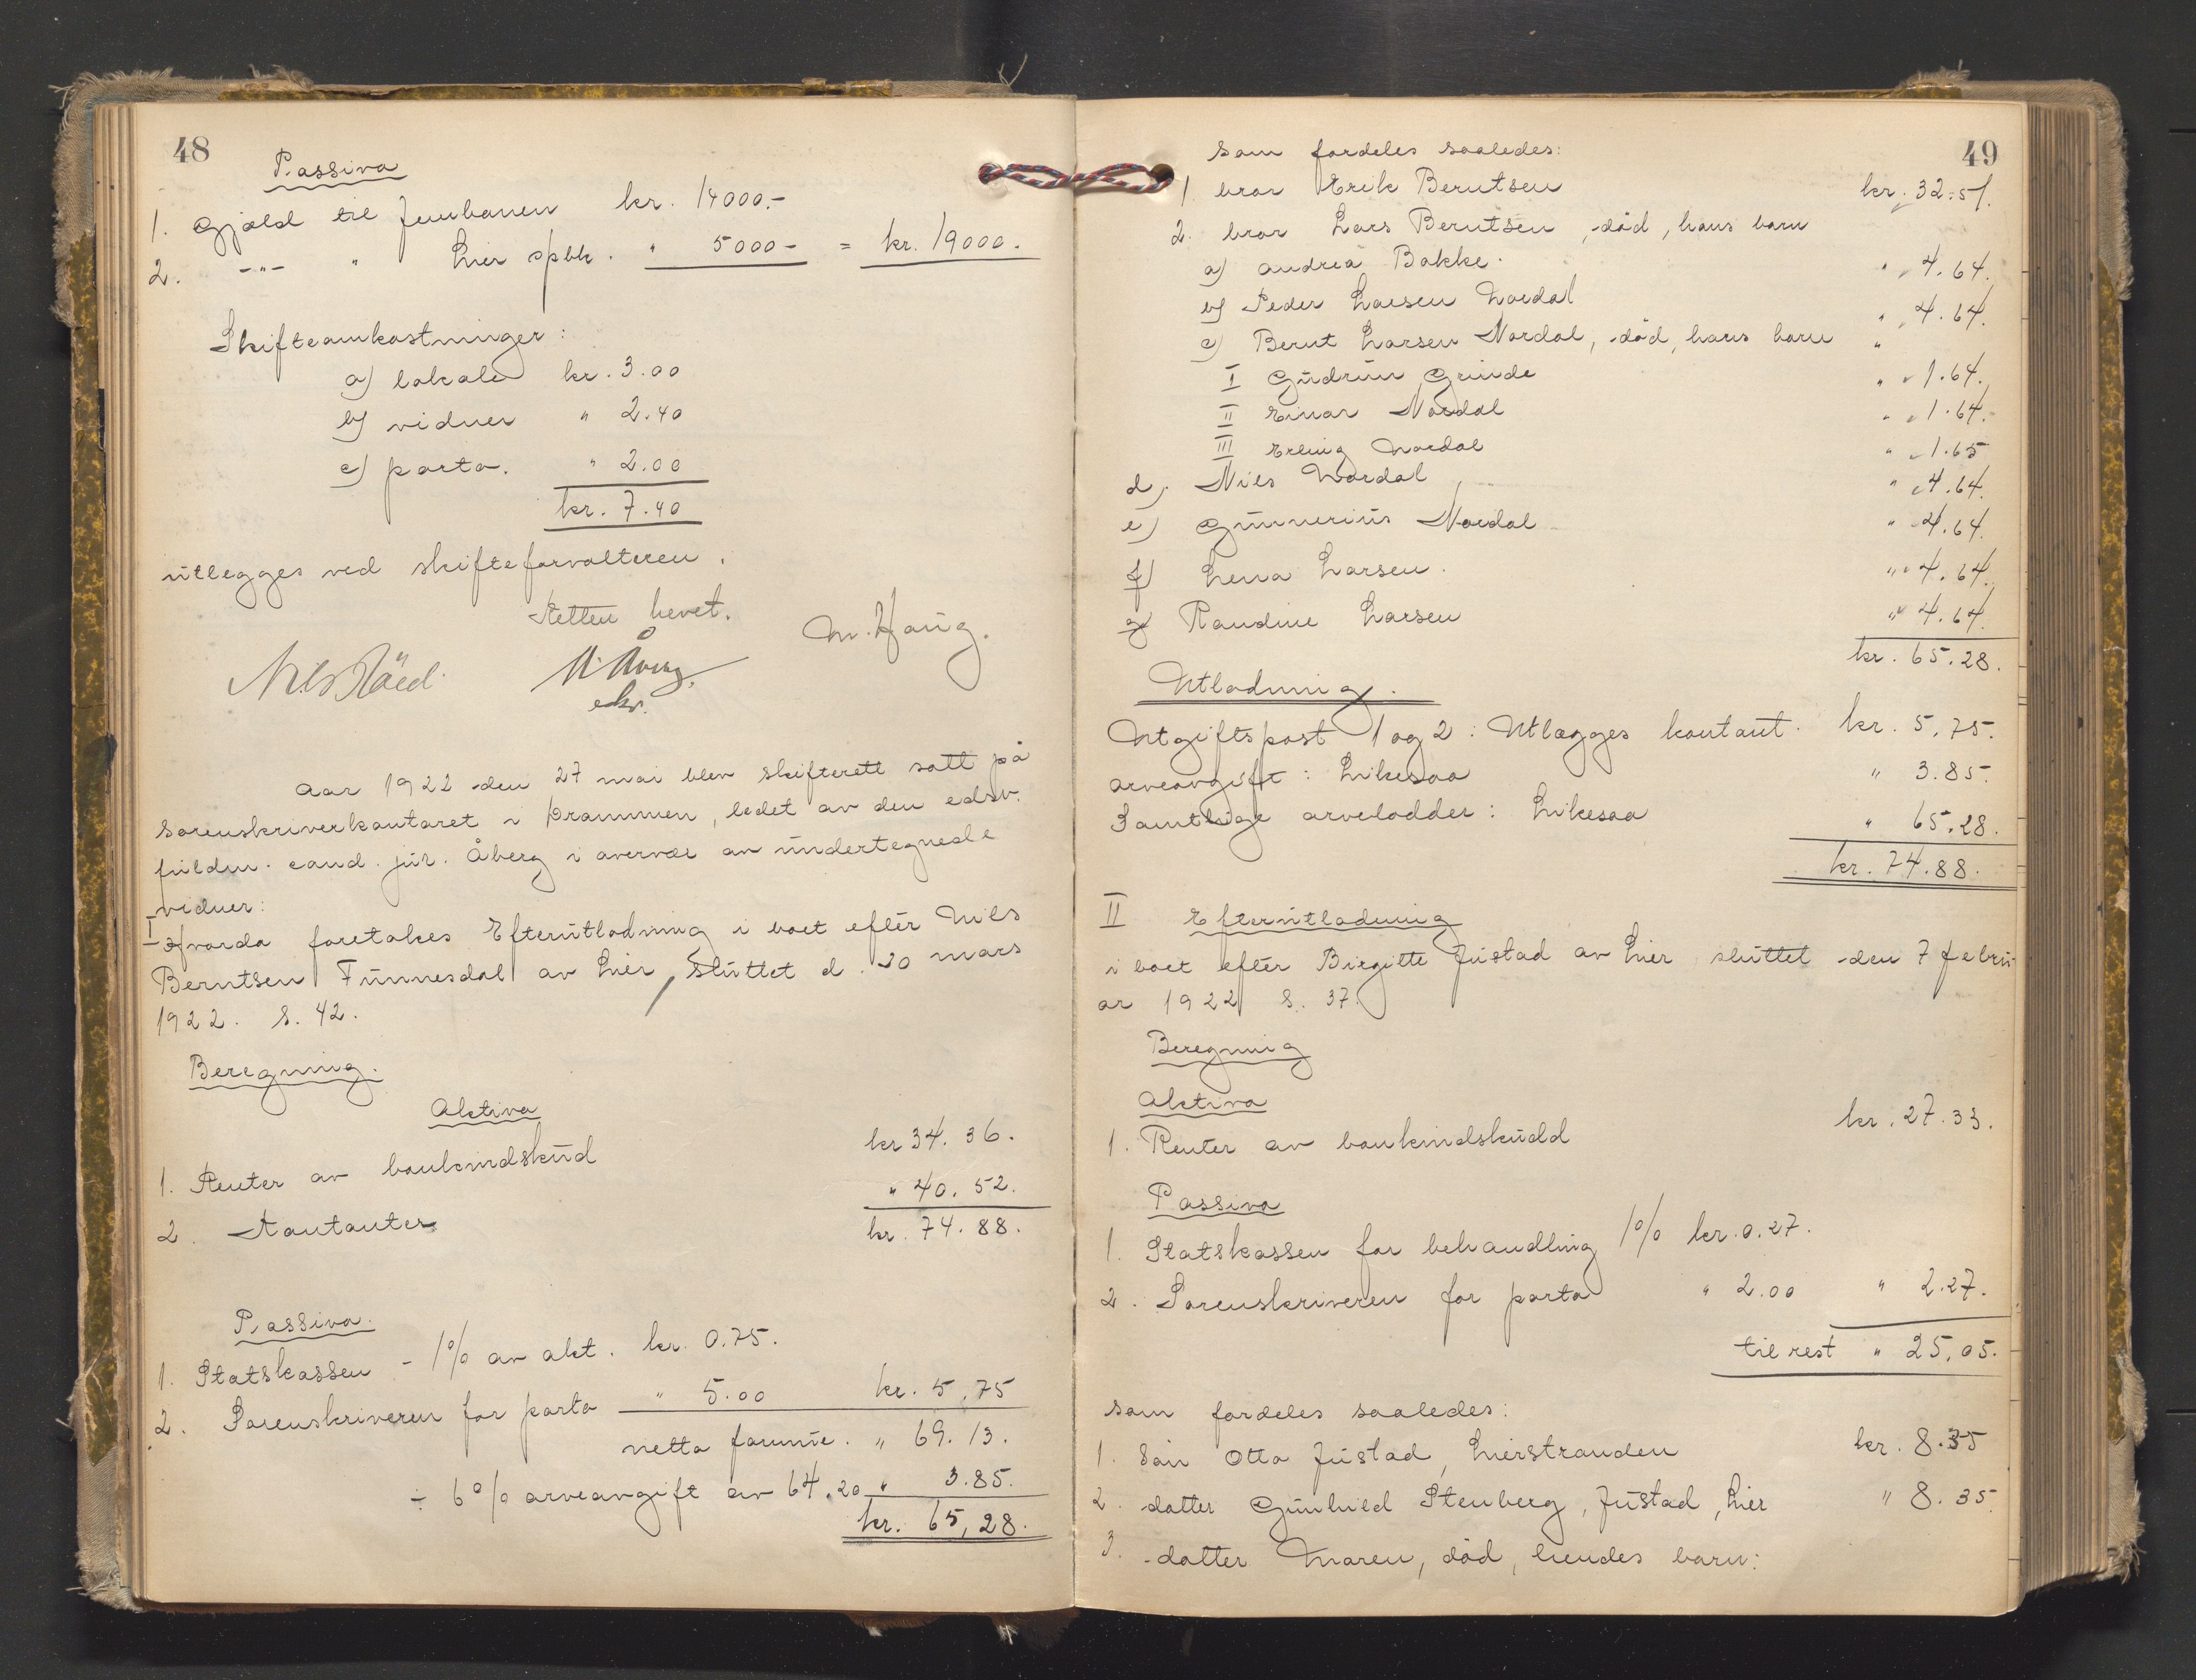 48
Passiva
1. Gjæld til Jernbanen kr. 14000.-
2. -"- " Lier spbk. " 5000- = kr. 19000.
Skifteomkostninger:
a) lokale kr. 3.00
b) vidner " 2.40
c) porto. " 2.00
kr. 7.40
utlegges ved skifteforvalteren.
Retten hevet.
M. Haug.
Aar 1922 den 27 mai blev skifterett satt på
sorenskriverkontoret i Drammen, ledet av den edsv.
fuldm. cand. jur. Åberg i overvær av undertegnede
vidner:
I Hvorda foretokes Efterutlodning i boet efter Nils
Berntsen Funnesdal av Lier, sluttet d. 20 mars
1922. S. 42.
Beregning.
Aktiva
1. Renter av bankindskud kr 34.36.
2. Kontanter " 40.52.
kr. 74.88.
Passiva.
1. Statskassen - 1% av akt. kr. 0.75.
2. Sorenskriveren for porto " 5.00 kr. 5,75
netto formue. " 69.13.
÷ 6% arveavgift av 64.20 " 3.85.
kr. 65,28.
49
som fordeles saaledes:
1. bror Erik Berntsen kr. 32.51.
2. bror Lars Berntsen, død, hans barn
a) Andrea Bakke. " 4.64.
b) Peder Larsen Nordal " 4.64.
c) Bernt Larsen Nordal, død, hans barn "
I Gudrun Grinde " 1.64.
II Einar Nordal " 1.64.
III Erling Nordal " 1.65
d) Nils Nordal " 4.64.
e) Gunnerius Nordal " 4.64.
f) Lena Larsen. " 4.64.
g) Randine Larsen " 4.64.
kr. 65.28.
Utlodning.
Utgiftspost 1 og 2: Utlægges kontant. kr. 5,75.
Arveavgift: Likesaa " 3.85.
Samtlige arvelodder: Likesaa " 65.28.
kr. 74.88.
II Efterutlodning
i boet efter Birgitte Justad av Lier sluttet den 7 febru-
ar 1922 S. 37.
Beregning
Aktiva
1. Renter av bankindskudd kr. 27.33.
Passiva
1. Statskassen for behandling 1% kr. 0.27.
2. Sorenskriveren for porto " 2.00 " 2.27.
til rest " 25,05.
som fordeles saaledes:
1. Søn Otto Justad, Lierstranden kr. 8.35
2. datter Gunhild Stenberg, Justad, Lier " 8.35
3. datter Maren, død, hendes barn: